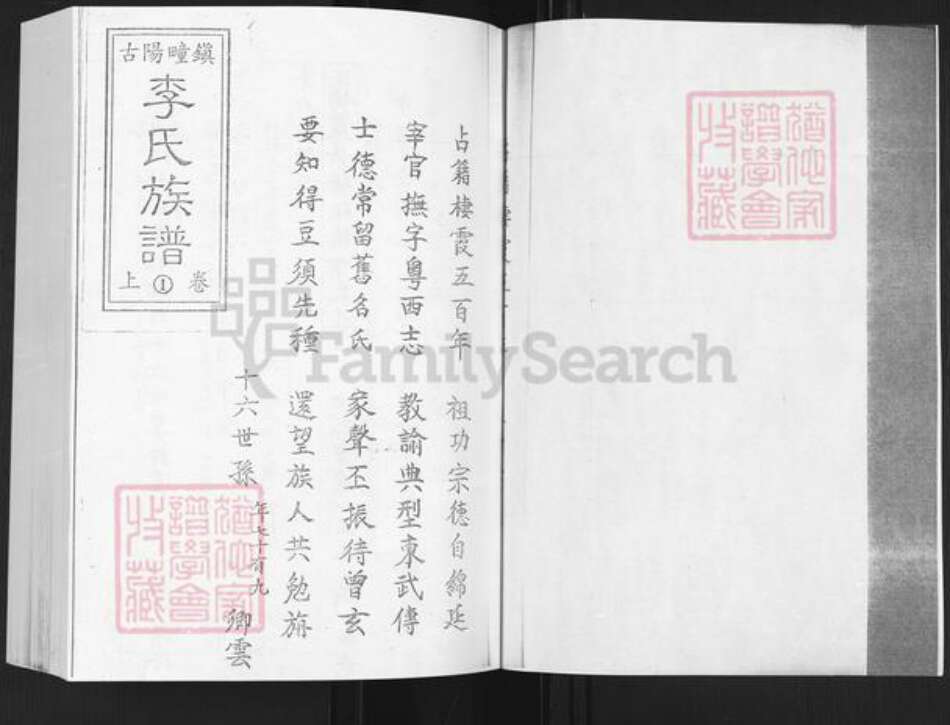 古陽疃鎮
李氏族譜
卷①上
占籍棲霞五百年 祖功宗德自綿延
宰官撫字粵西志 教諭典型東武傳
士德常留舊名氏 家聲丕振待曾玄
要知得豆須先種 還望族人共勉旃
十六世孫 年七十有九 卿雲
FamilySearch